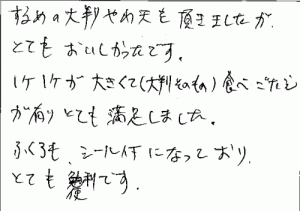 するめの大判やわ天も頂きましたが、
とてもおいしかったです。
1ケ1ケが大きくて(大判そのもの)食べごたえ
が有りとても満足しました。
ふくろも、シール付になっており、
とても便利です。